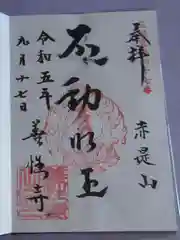 奉拝
赤堤山
不動明王
善性寺
令和五年
九月十七日